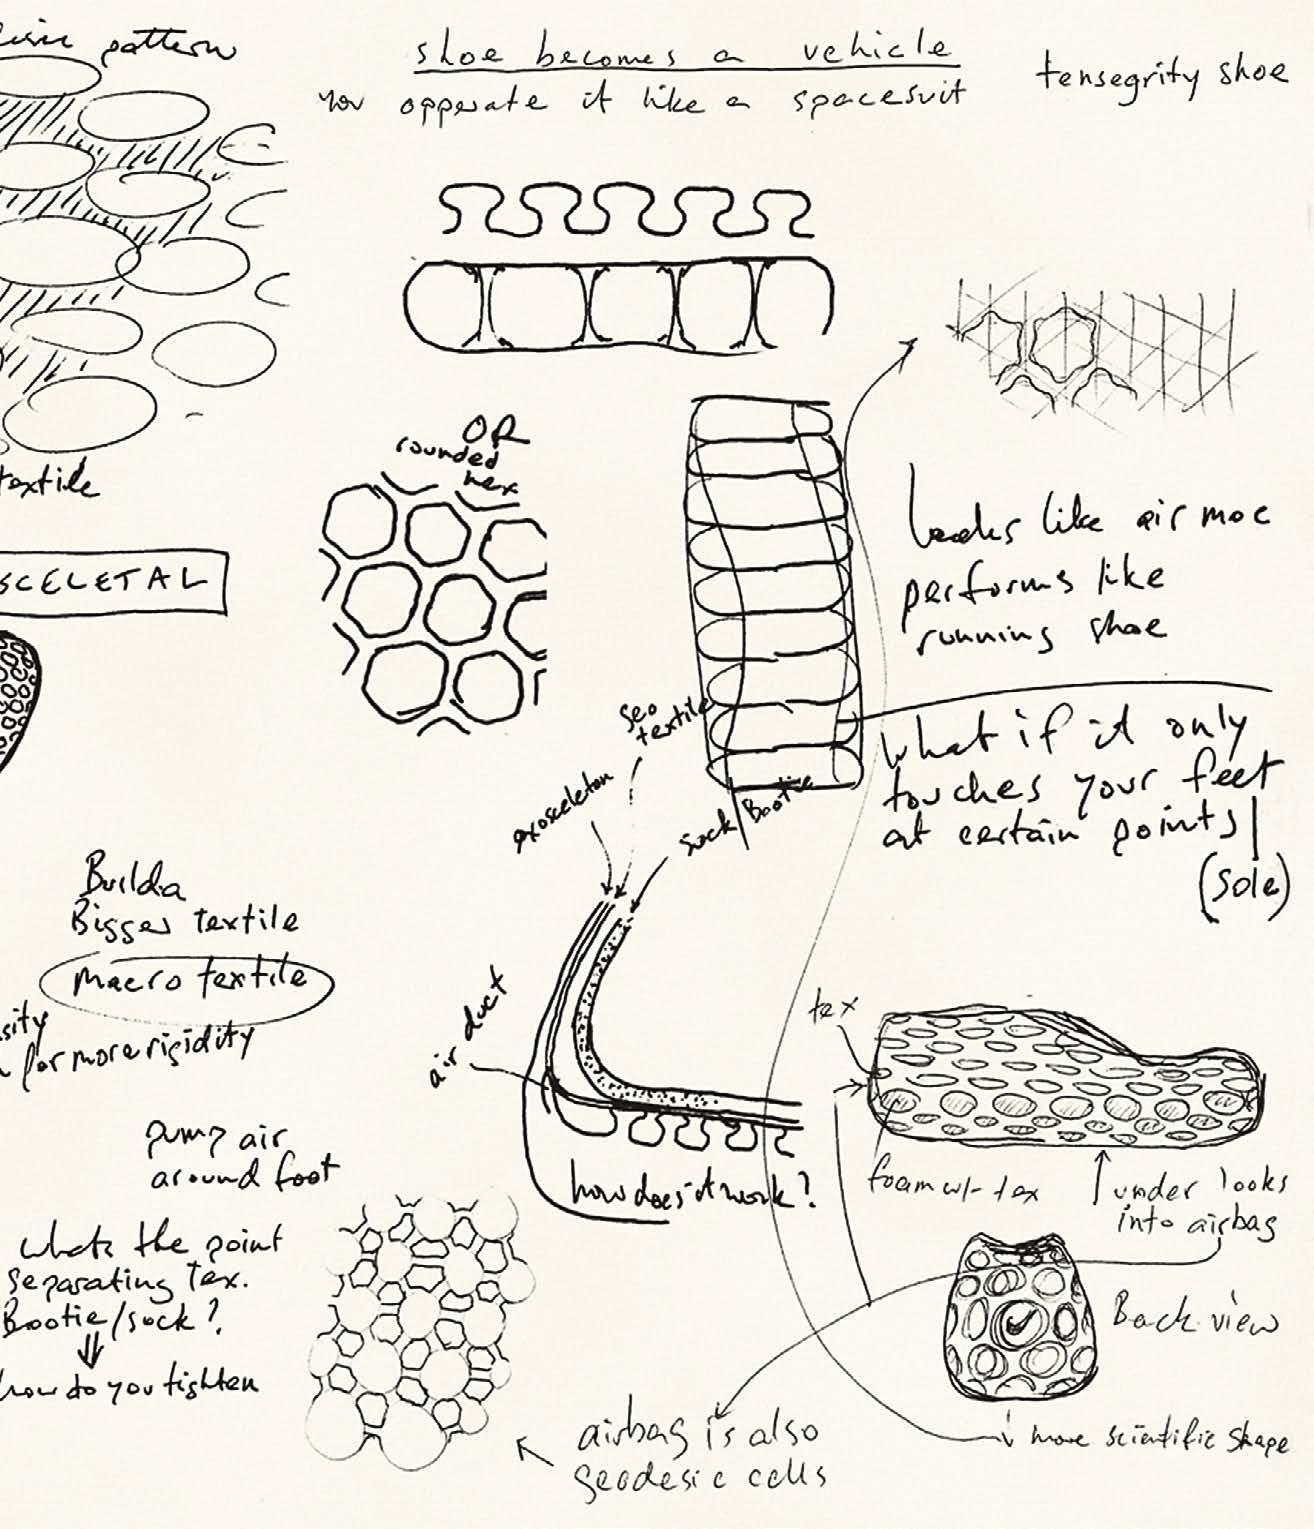 pattern
shoe becomes a vehicle
you opperate it like a spacesuit
tensegrity shoe
OR
rounded
hex
textile
SCELETAL
looks like air moc
performs like
running shoe
geo
textile
exosceleton
sock Bootie
what if it only
touches your feet
at certain points
(sole)
Build a
Bigger textile
macro textile
sity
for more rigidity
air duct
tex
pump air
around foot
how does it work?
foam w/- tex
under looks
into airbag
whats the point
separating Tex.
Bootie/sock?
how do you tighten
Back view
airbag is also
geodesic cells
more scientific shape